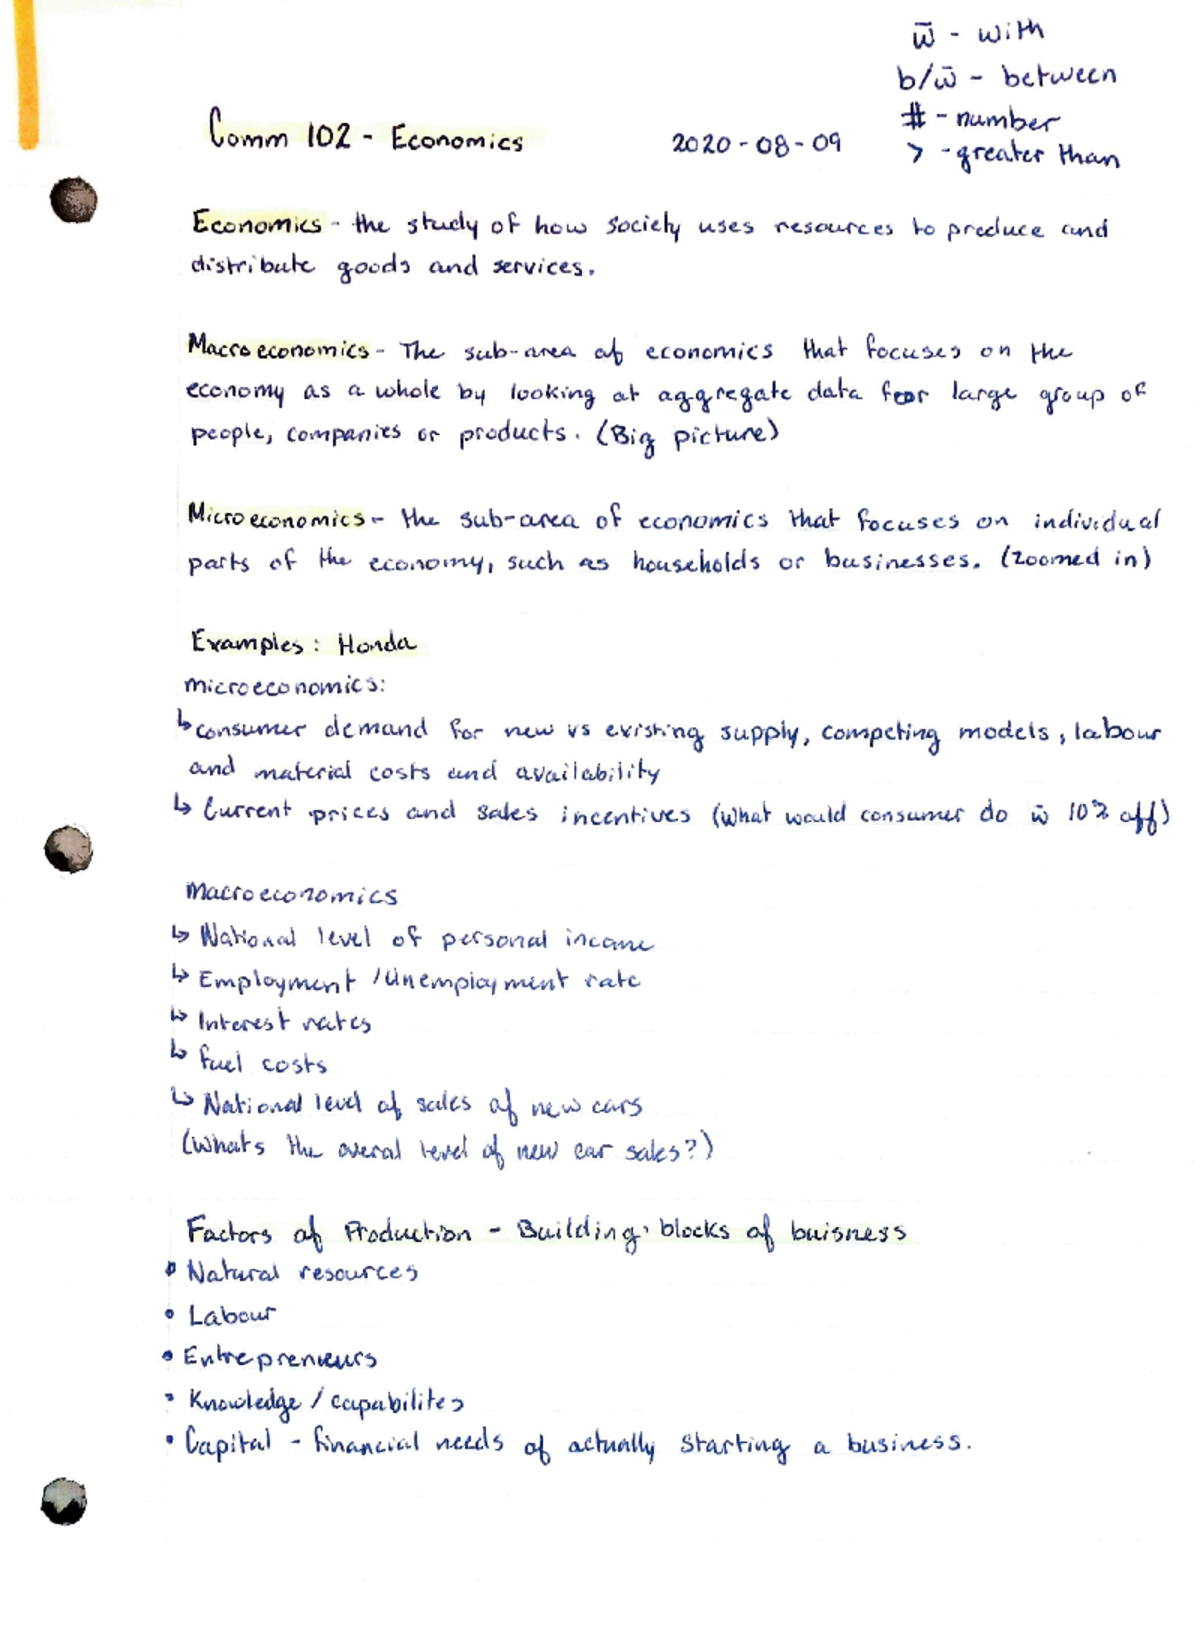 w̄ - with
b/w̄ - between
# - number
> - greater than
Comm 102 - Economics 2020-08-09
Economics - the study of how society uses resources to produce and
distribute goods and services.
Macroeconomics - The sub-area of economics that focuses on the
economy as a whole by looking at aggregate data for large group of
people, companies or products. (Big picture)
Microeconomics - the sub-area of economics that focuses on individual
parts of the economy, such as households or businesses. (zoomed in)
Examples: Honda
microeconomics:
↳ consumer demand for new vs existing supply, competing models, labour
and material costs and availability
↳ Current prices and sales incentives (what would consumer do w̄ 10% off)
Macroeconomics
↳ National level of personal income
↳ Employment / Unemployment rate
↳ Interest rates
↳ fuel costs
↳ National level of sales of new cars
(whats the overal level of new car sales?)
Factors of Production - Building blocks of buisness
• Natural resources
• Labour
• Entrepreneurs
• Knowledge / capabilites
• Capital - financial needs of actually starting a business.